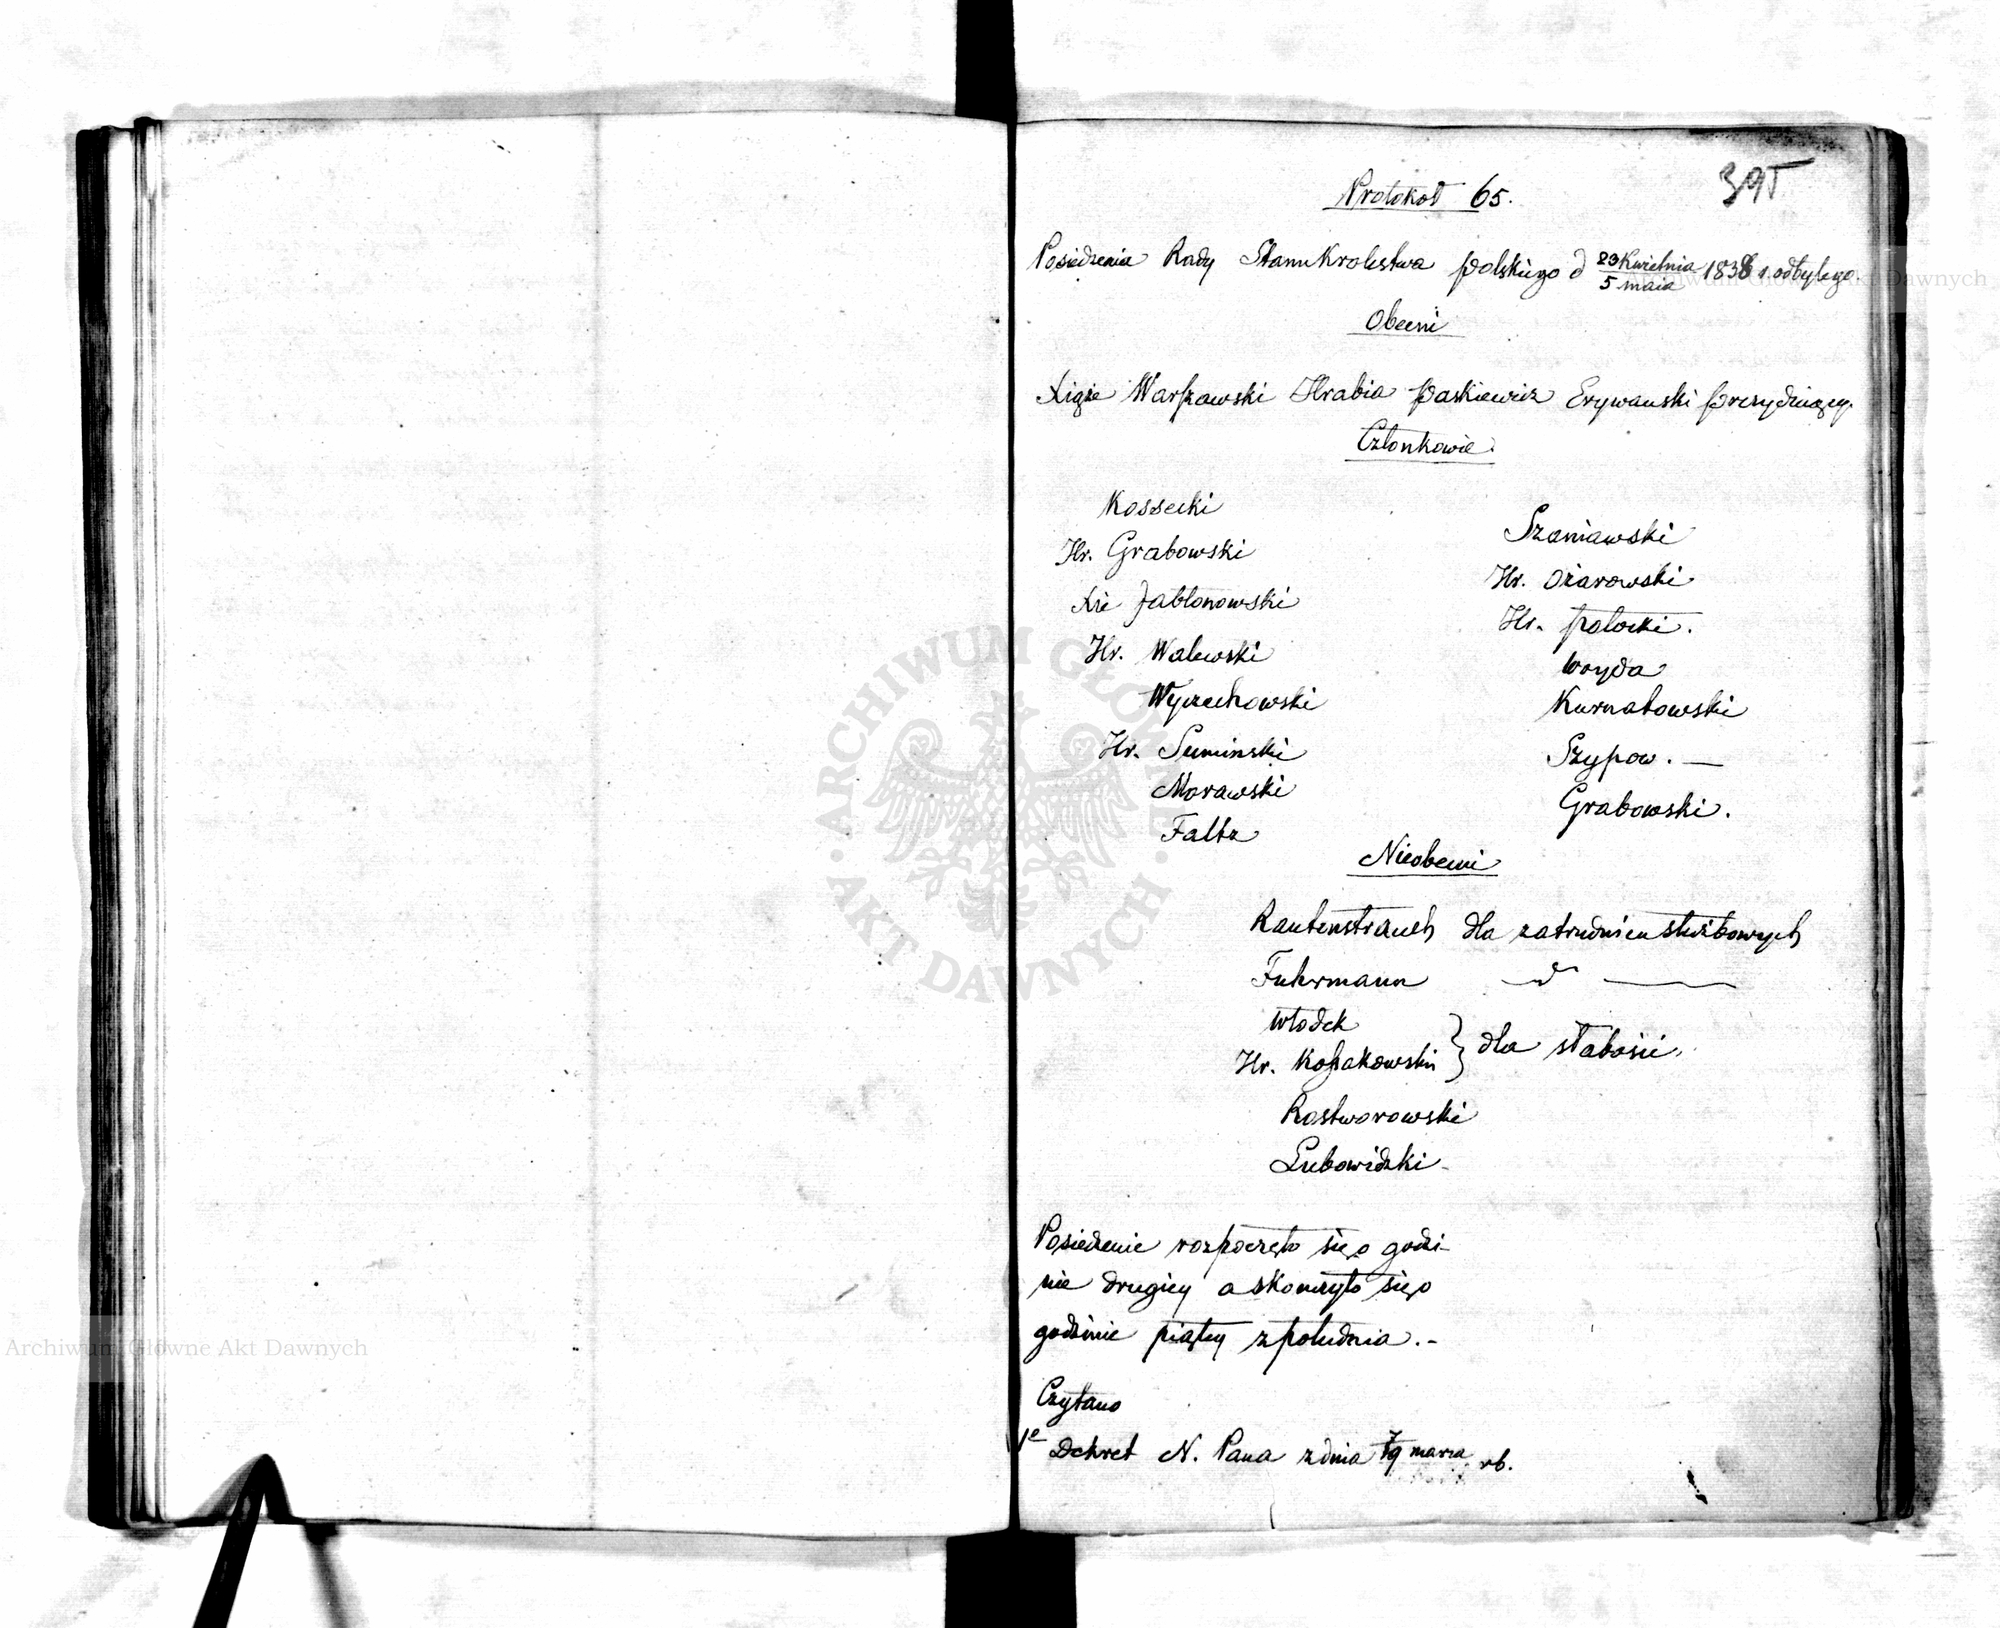 395
Protokoł 65.
Posiedzenia Rady Stanu Krolestwa Polskiego d 23 Kwietnia / 5 maia 1838 r. odbytego.
Obecni
Xiąże Warszawski Hrabia Paskiewicz Erywanski prezyduiący.
Członkowie.
Kossecki
Hr. Grabowski
Xże Jabłonowski
Hr. Walewski
Wyczechowski
Hr. Suminski
Morawski
Faltz
Szaniawski
Hr. Ożarowski
Hr. Potocki.
Woyda
Kurnatowski
Szypow. —
Grabowski.
Nieobecni
Rautenstrauch dla zatrudnien służbowych
Fuhrmann — d° —
Włodek
Hr. Kossakowski } dla słabości.
Rostworowski
Lubowidzki
Posiedzenie rozpoczęło się o godzi-
nie drugiey a skonczyło się o
godzinie piątey z południa. -
Czytano
1° Dekret N. Pana z dnia 7/19 marca rb.
ARCHIWUM GŁÓWNE AKT DAWNYCH
Archiwum Główne Akt Dawnych
Archiwum Główne Akt Dawnych